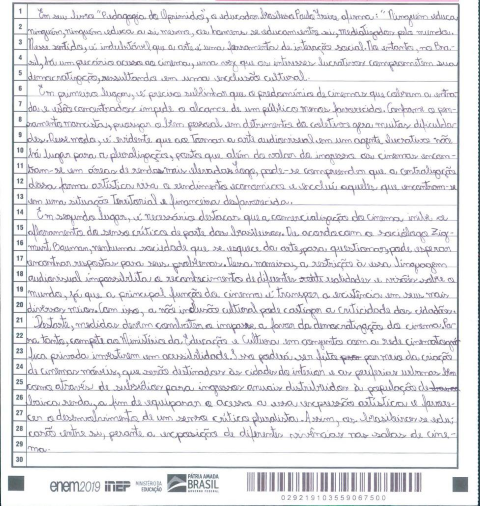 1 Em seu livro "Pedagogia do Oprimido", o educador brasileiro Paulo Freire afirma: "Ninguém educa
2 ninguém, ninguém educa a si mesmo, os homens se educam entre si, mediatizados pelo mundo.
3 Nesse sentido, é indubitável que a arte é uma ferramenta de interação social. No entanto, no Bra-
4 sil, há um precário acesso ao cinema, uma vez que os interesses lucrativos comprometem sua
5 democratização, resultando em uma exclusão cultural.
6 Em primeiro lugar, é preciso sublinhar que o predomínio de cinemas que cobram a entra-
7 da e estão concentrados impede o alcance de um público menos favorecido. Conforme o pen-
8 samento marxista, priorizar o bem pessoal em detrimento do coletivo gera muitas dificulda-
9 des. Desse modo, é evidente que ao tornar a arte audiovisual em um agente lucrativo não
10 há lugar para a pluralização, posto que além do valor do ingresso os cinemas encon-
11 tram-se em áreas de rendas mais elevadas. Logo, pode-se compreender que a centralização
12 dessa forma artística visa o rendimento econômico e exclui aqueles que encontram-se
13 em uma situação territorial e financeira desfavorecida.
14 Em segundo lugar, é necessário destacar que a comercialização do cinema inibe o
15 afloramento do senso crítico de parte dos brasileiros. De acordo com o sociólogo Zyg-
16 munt Bauman, nenhuma sociedade que se esquece da arte de questionar, pode esperar
17 encontrar respostas para seus problemas. Dessa maneira, a restrição à essa linguagem
18 audiovisual impossibilita o reconhecimento de diferentes realidades e visões sobre o
19 mundo, já que a principal função do cinema é transpor a existência em seus mais
20 diversos vieses. Com isso, a não inclusão cultural pode castigar a criticidade dos cidadãos.
21 Destarte, medidas devem combater o impasse a favor da democratização do cinema. Pa-
22 ra tanto, compete ao Ministério da Educação e Cultura em conjunto com a rede cinematográ-
23 fica privada investirem em acessibilidade. Isso poderá ser feito por meio da criação
24 de cinemas móveis, que serão destinados às cidades do interior e as periferias urbanas bem
25 como através de subsídios para ingressos anuais distribuídos à população de
26 baixa renda, a fim de equiparar o acesso a essa expressão artística e favore-
27 cer o desenvolvimento de um senso crítico pluralista. Assim, os brasileiros se edu-
28 carão entre si, perante a exposição de diferentes vivências nas salas de cine-
29 ma.
30
enem2019 INEP MINISTÉRIO DA EDUCAÇÃO PÁTRIA AMADA BRASIL GOVERNO FEDERAL
029219103559067500